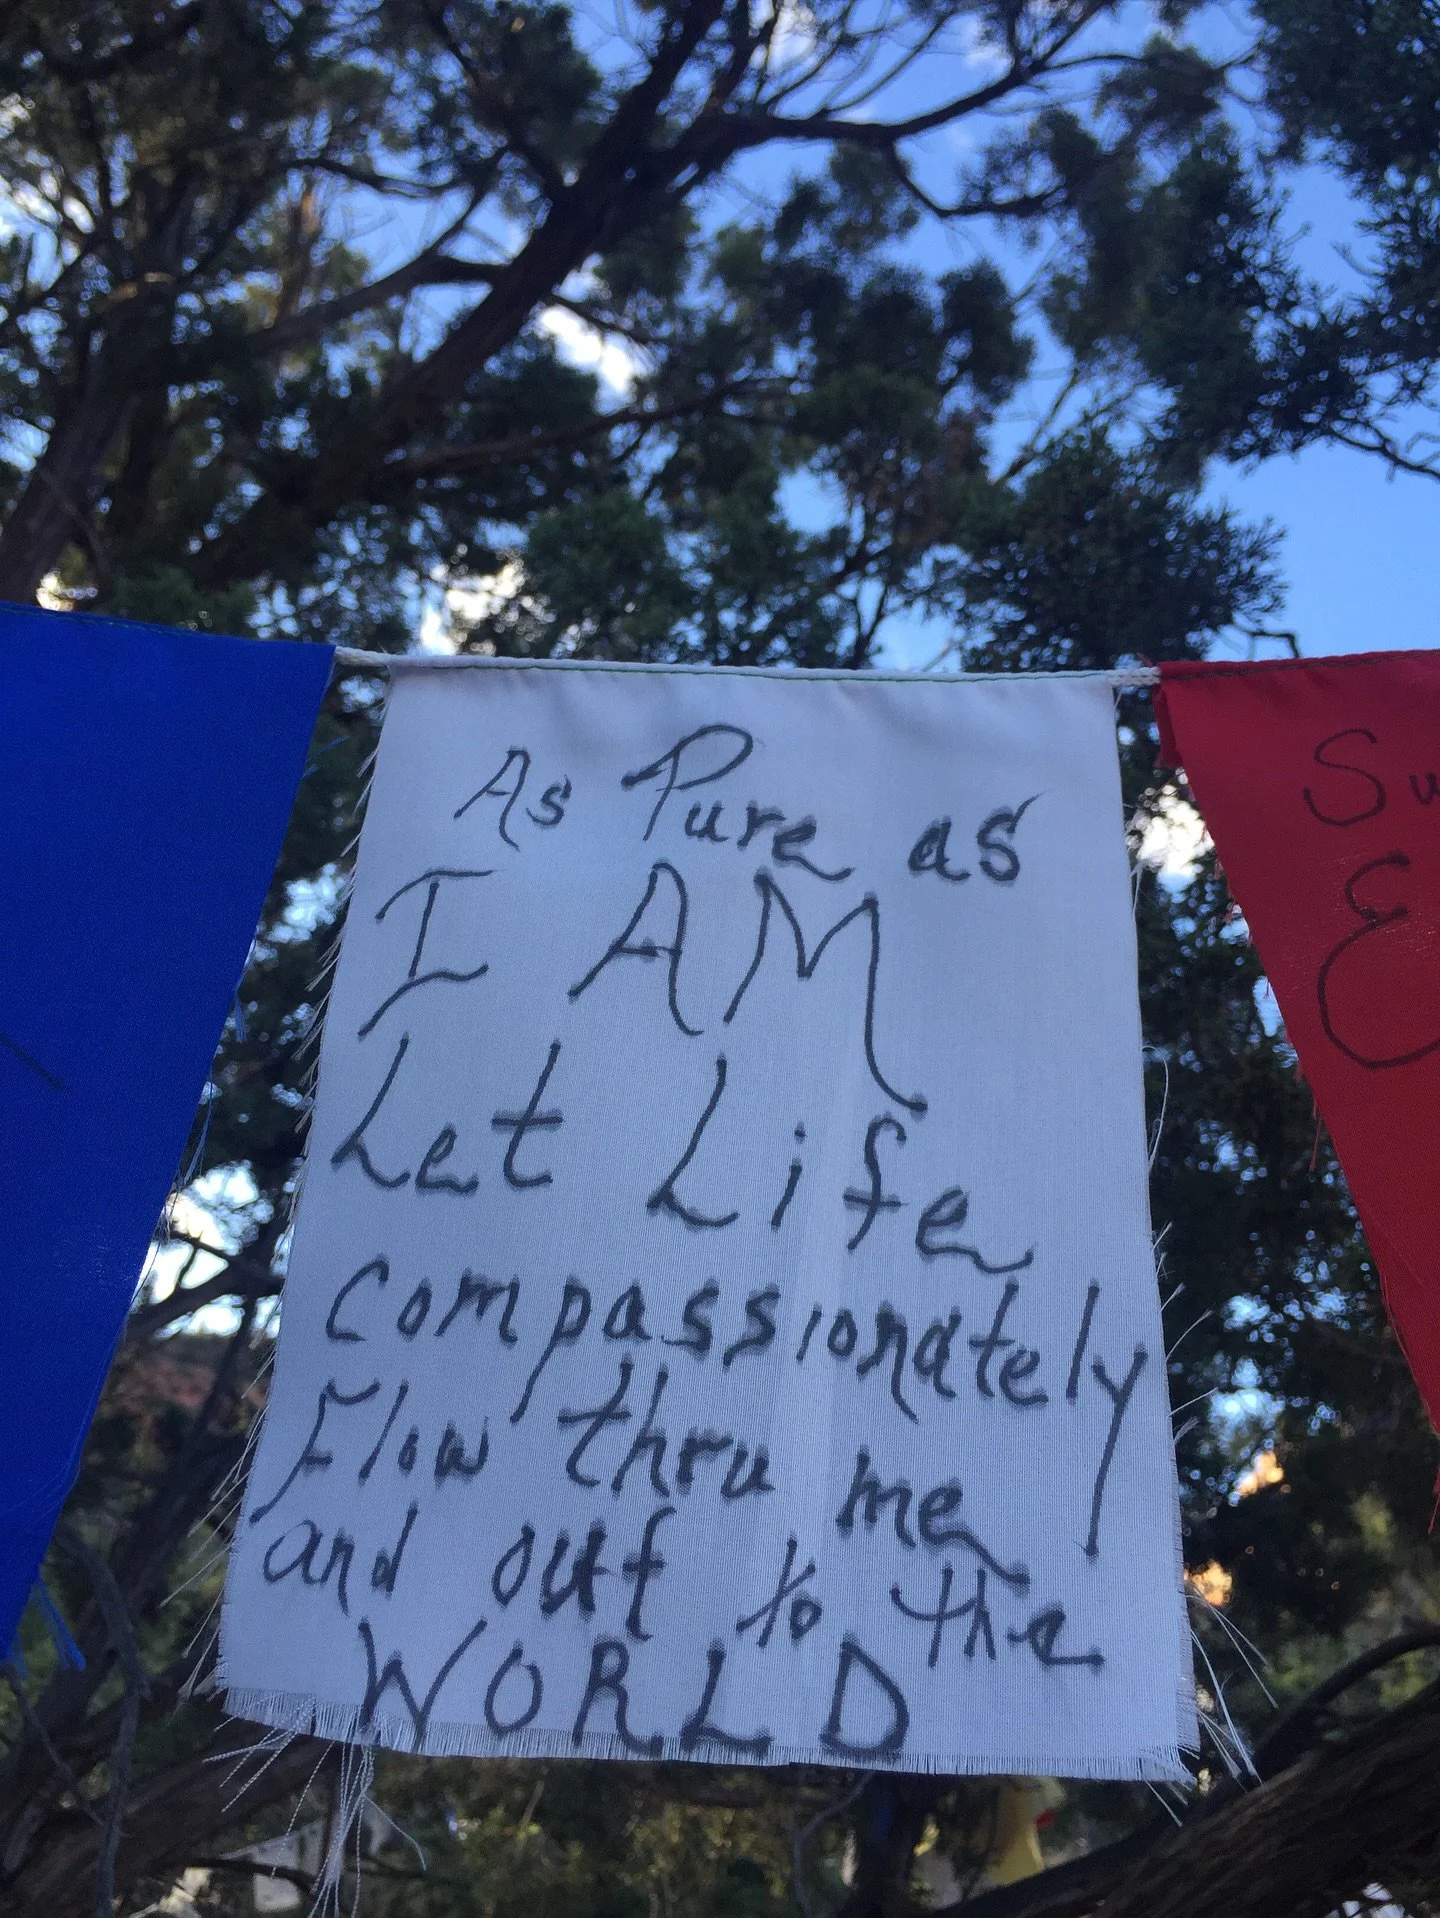 As Pure as
I AM
Let Life
compassionately
Flow thru me
and out to the
WORLD